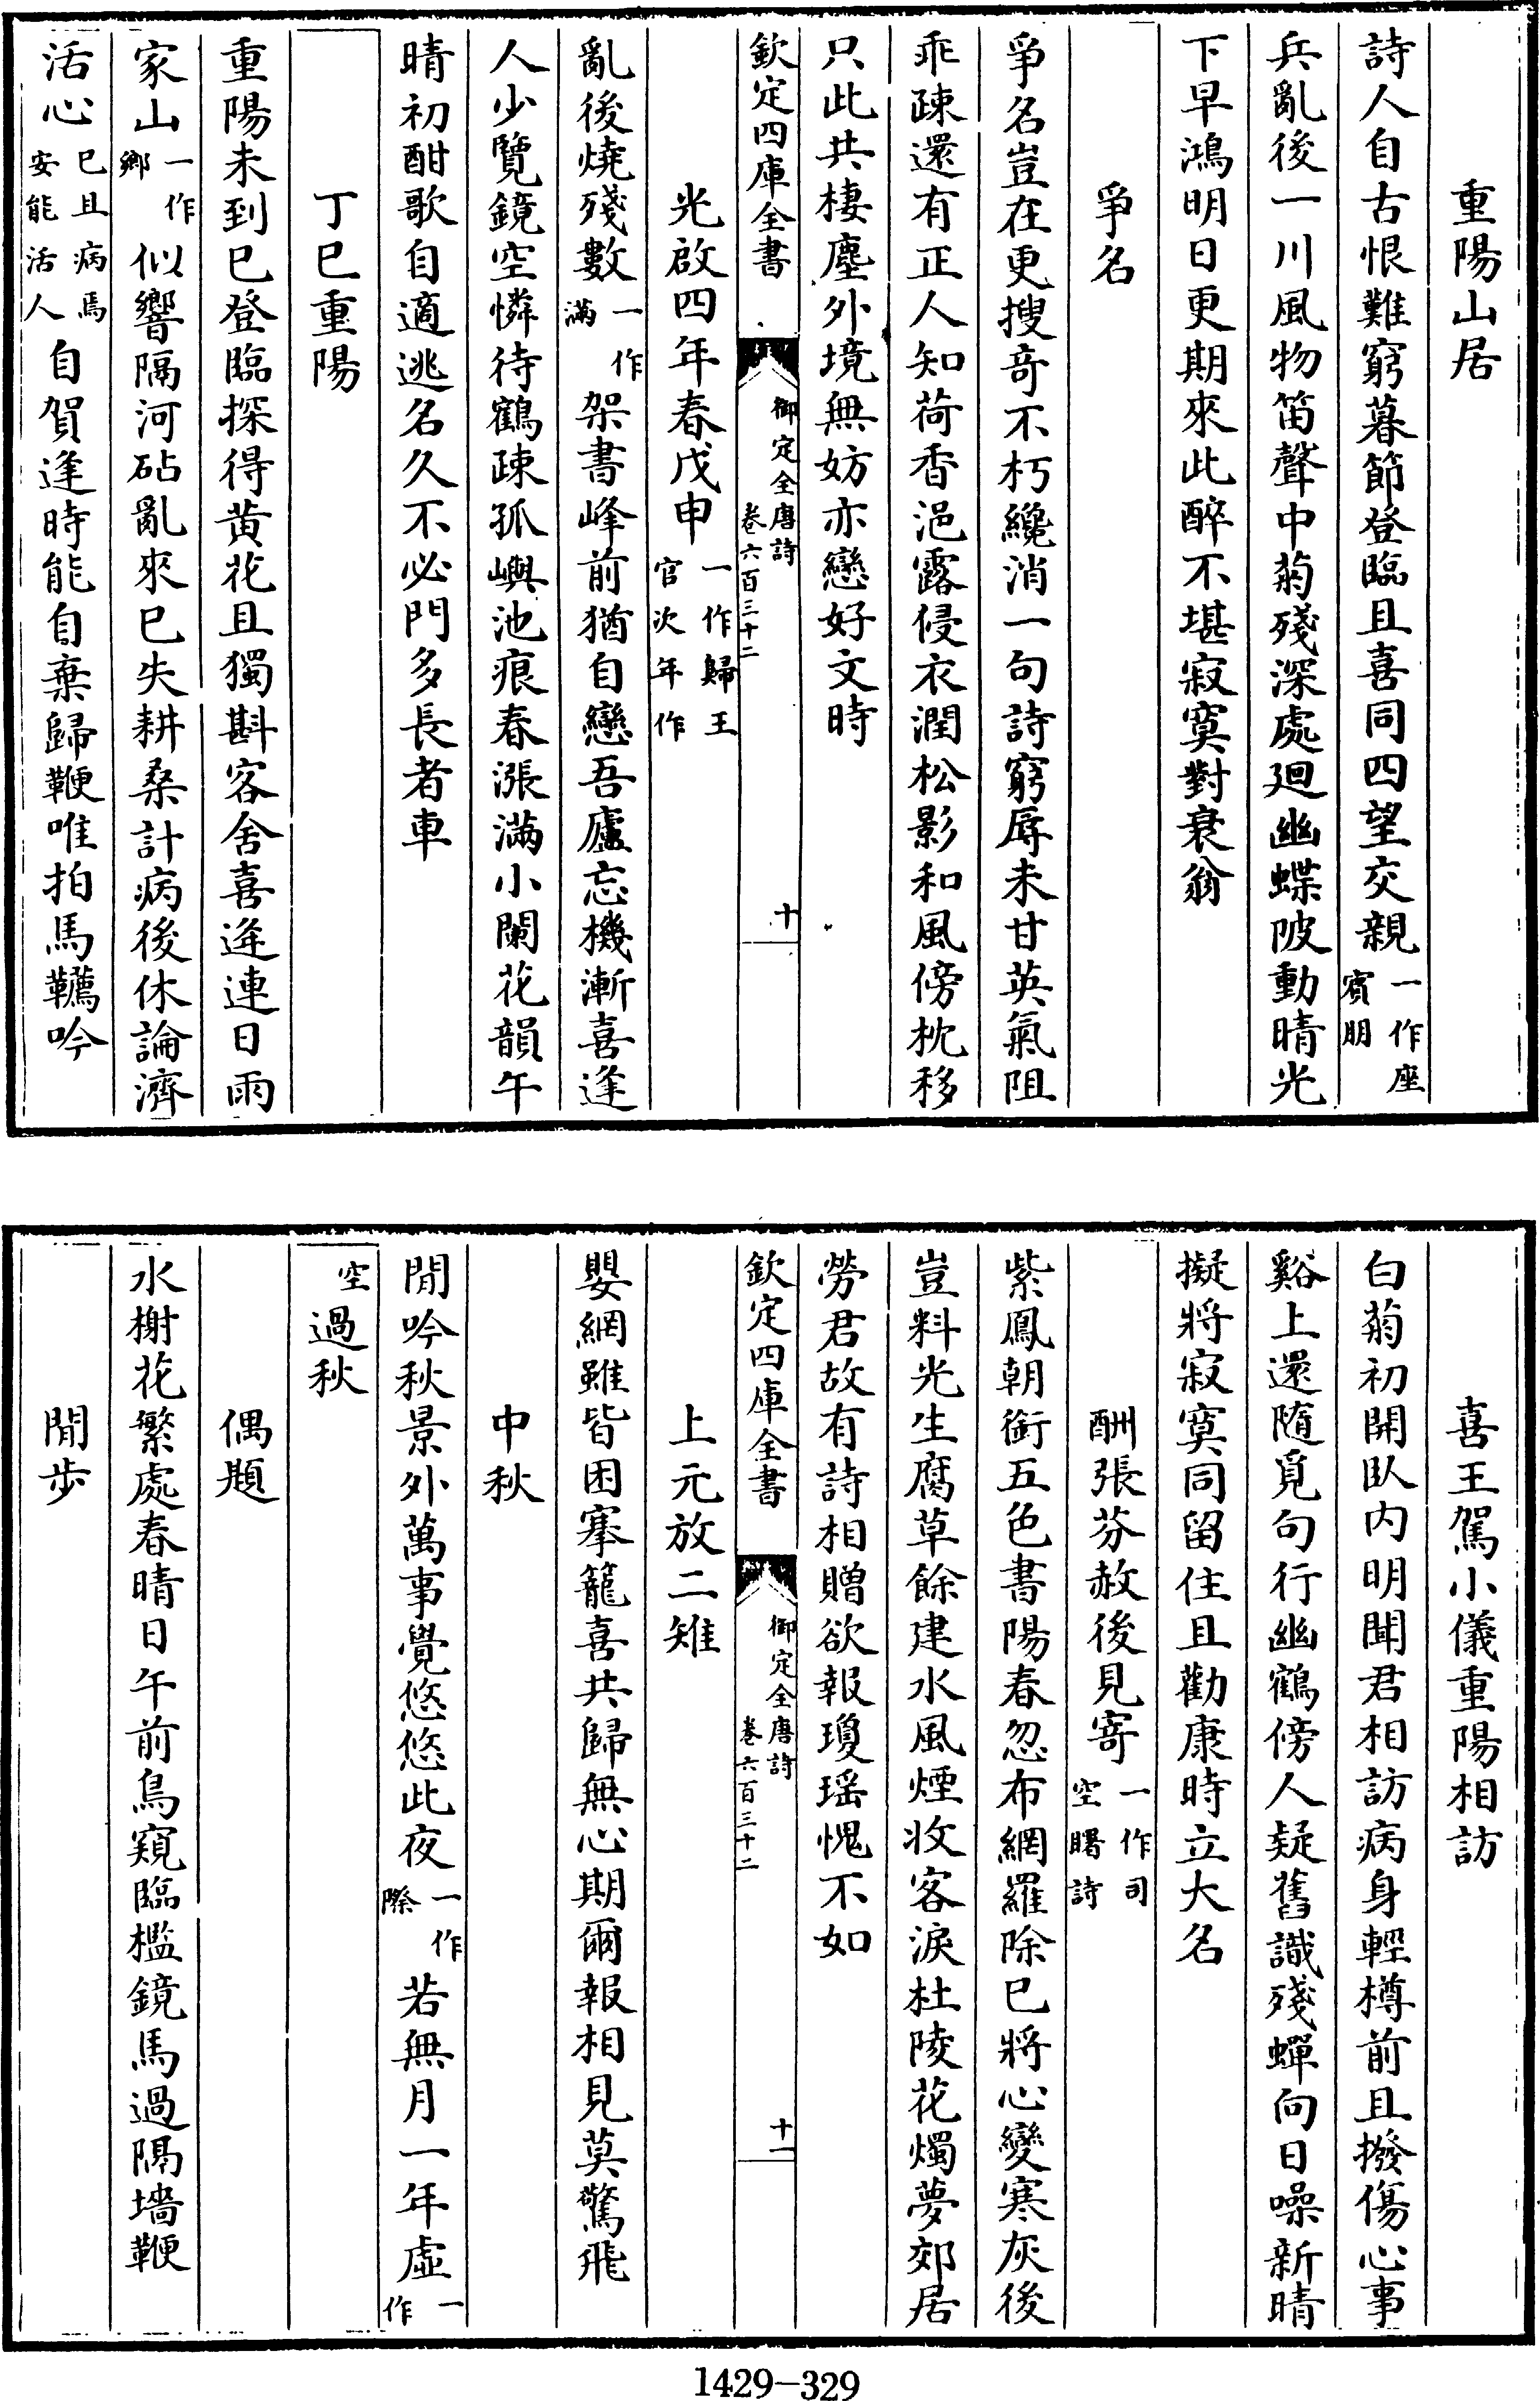 重陽山居
詩人自古恨難窮暮節登臨且喜同四望交親一作座賓朋
兵亂後一川風物笛聲中菊殘深處廻幽蝶陂動晴光
下早鴻明日更期來此醉不堪寂寞對衰翁
爭名
爭名豈在更搜竒不朽纔消一句詩窮辱未甘英氣阻
乖疎還有正人知荷香浥露侵衣潤松影和風傍枕移
只此共棲塵外境無妨亦戀好文時
欽定四庫全書
御定全唐詩
卷六百三十二
十
光啟四年春戊申一作歸王官次年作
亂後燒殘數一作滿架書峰前猶自戀吾廬忘機漸喜逢
人少覽鏡空憐待鶴疎孤嶼池痕春漲滿小闌花韻午
晴初酣歌自適逃名久不必門多長者車
丁巳重陽
重陽未到巳登臨探得黄花且獨斟客舍喜逢連日雨
家山一作鄉似響隔河砧亂來巳失耕桑計病後休論濟
活心巳且病焉安能活人自賀逢時能自棄歸鞭唯拍馬韉吟
喜王駕小儀重陽相訪
白菊初開臥内明聞君相訪病身輕樽前且撥傷心事
谿上還隨覓句行幽鶴傍人疑舊識殘蟬向日噪新晴
擬將寂寞同留住且勸康時立大名
酬張芬赦後見寄一作司空曙詩
紫鳳朝銜五色書陽春忽布網羅除巳將心變寒灰後
豈料光生腐草餘建水風煙收客淚杜陵花燭夢郊居
勞君故有詩相贈欲報瓊瑶愧不如
欽定四庫全書
御定全唐詩
卷六百三十二
十一
上元放二雉
嬰網雖皆困搴籠喜共歸無心期爾報相見莫驚飛
中秋
閒吟秋景外萬事覺悠悠此夜一作際若無月一年虛一作
空過秋
偶題
水榭花繁處春晴日午前鳥窺臨檻鏡馬過隔墻鞭
閒步
1429-329